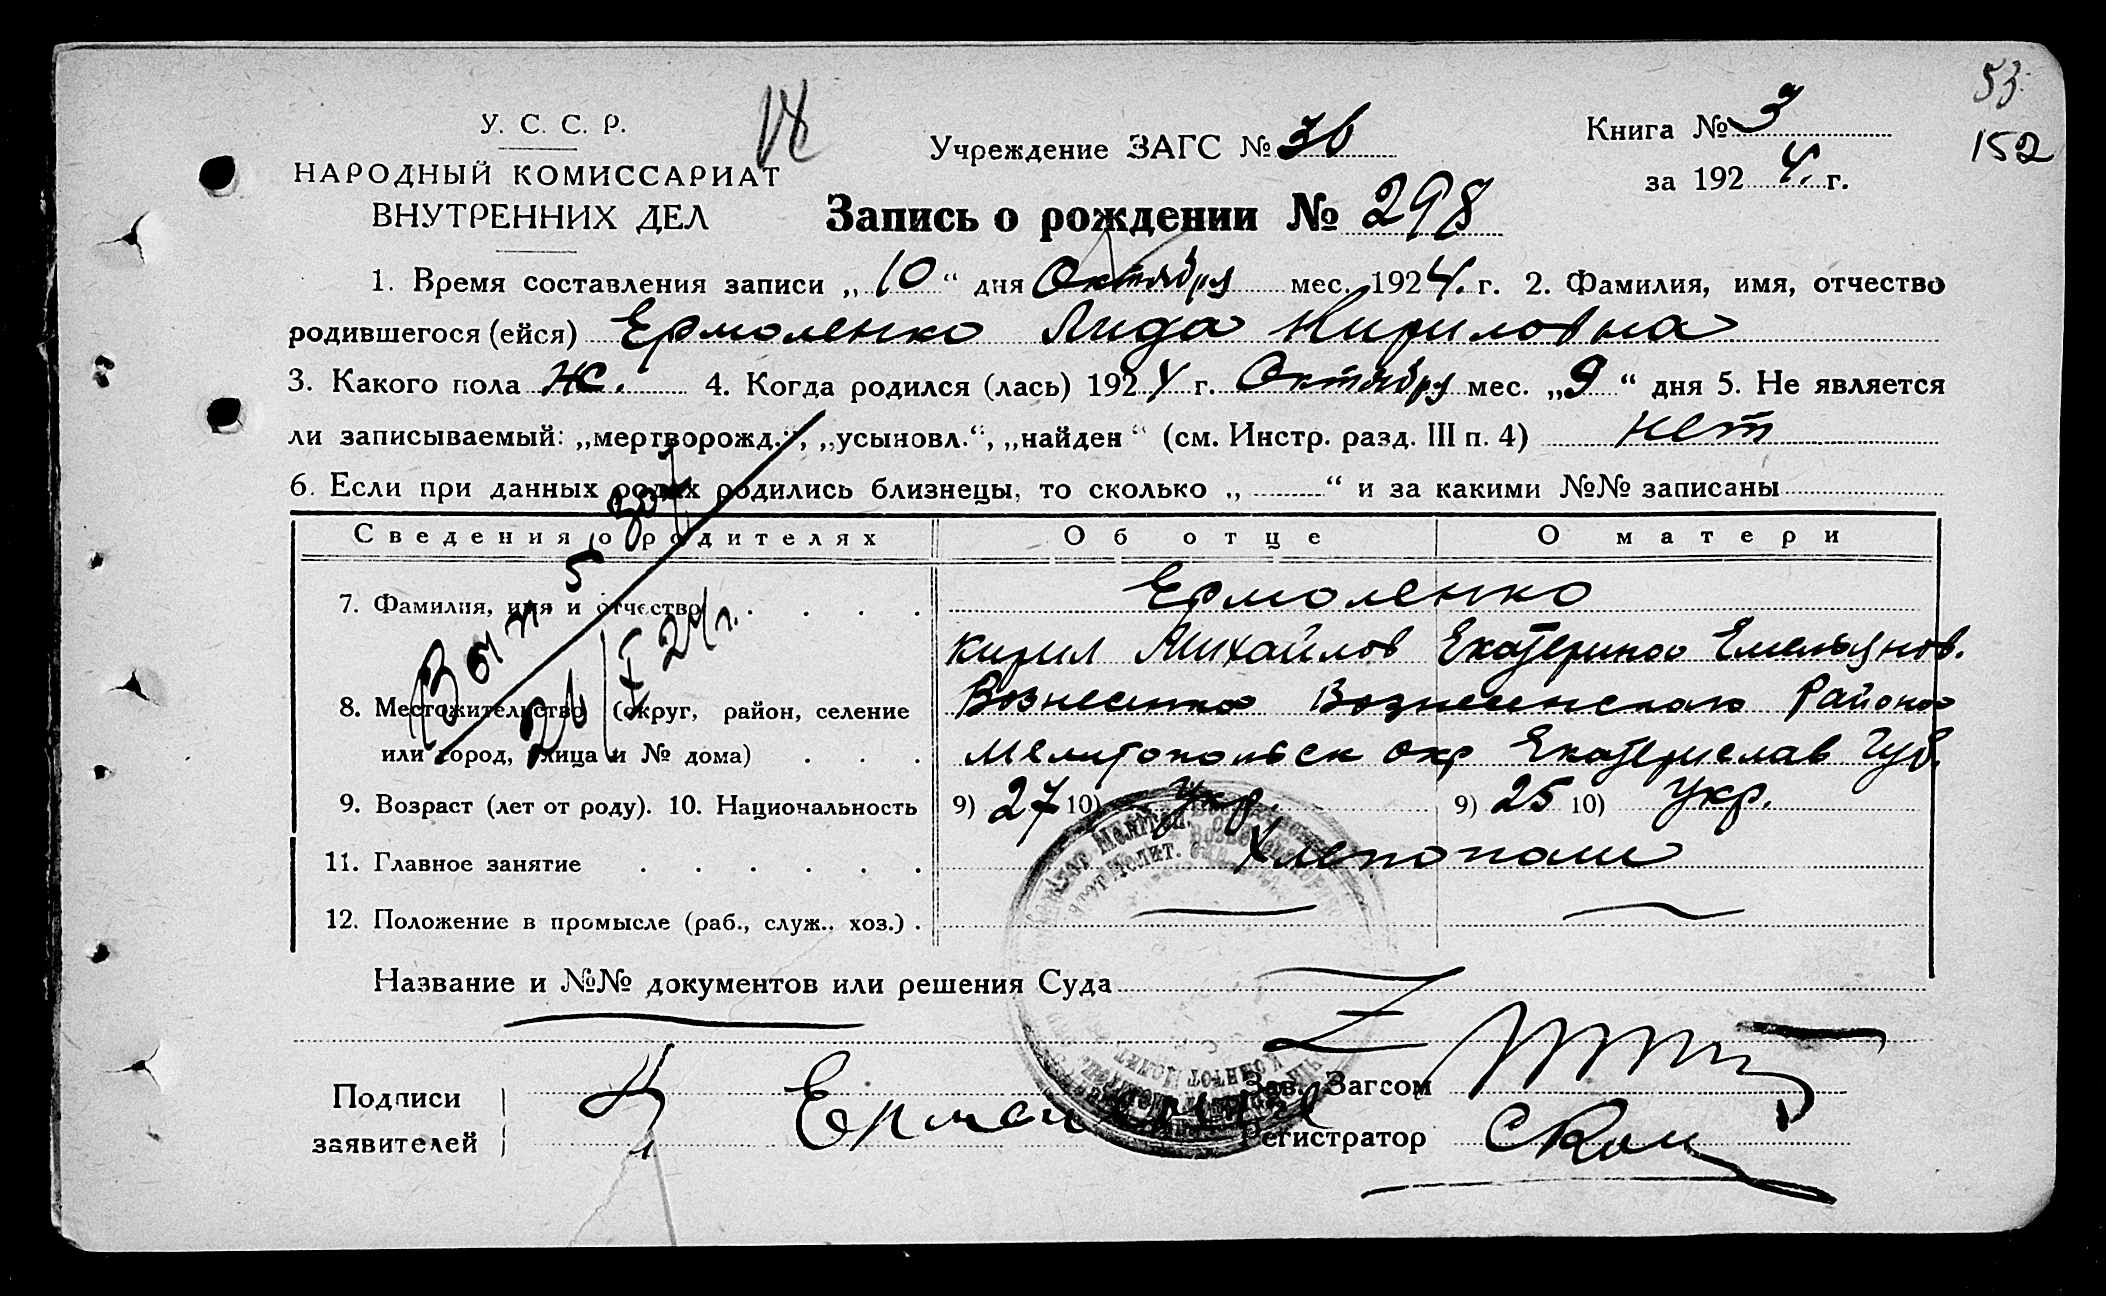 53
152
18
У. С. С. Р.
НАРОДНЫЙ КОМИССАРИАТ
ВНУТРЕННИХ ДЕЛ
Учреждение ЗАГС № 36
Книга № 3
за 1924. г.
Запись о рождении № 298
1. Время составления записи „10“ дня Октября мес. 1924. г. 2. Фамилия, имя, отчество
родившегося (ейся) Ермоленко Лида Кириловна
3. Какого пола Ж. 4. Когда родился (лась) 1924 г. Октября мес. „9“ дня 5. Не является
ли записываемый: „мертворожд.“, „усыновл.“, „найден“ (см. Инстр. разд. III п. 4) нет
6. Если при данных родах родились близнецы, то сколько „ “ и за какими №№ записаны
Сведения о родителях Об отце О матери
7. Фамилия, имя и отчество Ермоленко
Кирил Михайлов Екатерина Емельянов.
8. Местожительство (округ, район, селение Вознесенка Вознесенскаго Района
или город, улица и № дома) Мелитопольск окр Екатерислав Губ.
9. Возраст (лет от роду). 10. Национальность 9) 27 10) Укр. 9) 25 10) Укр.
11. Главное занятие Хлепопаши
12. Положение в промысле (раб., служ.. хоз.)
Название и №№ документов или решения Суда
Подписи
заявителей
К Ермоленко
Зав. Загсом
Регистратор